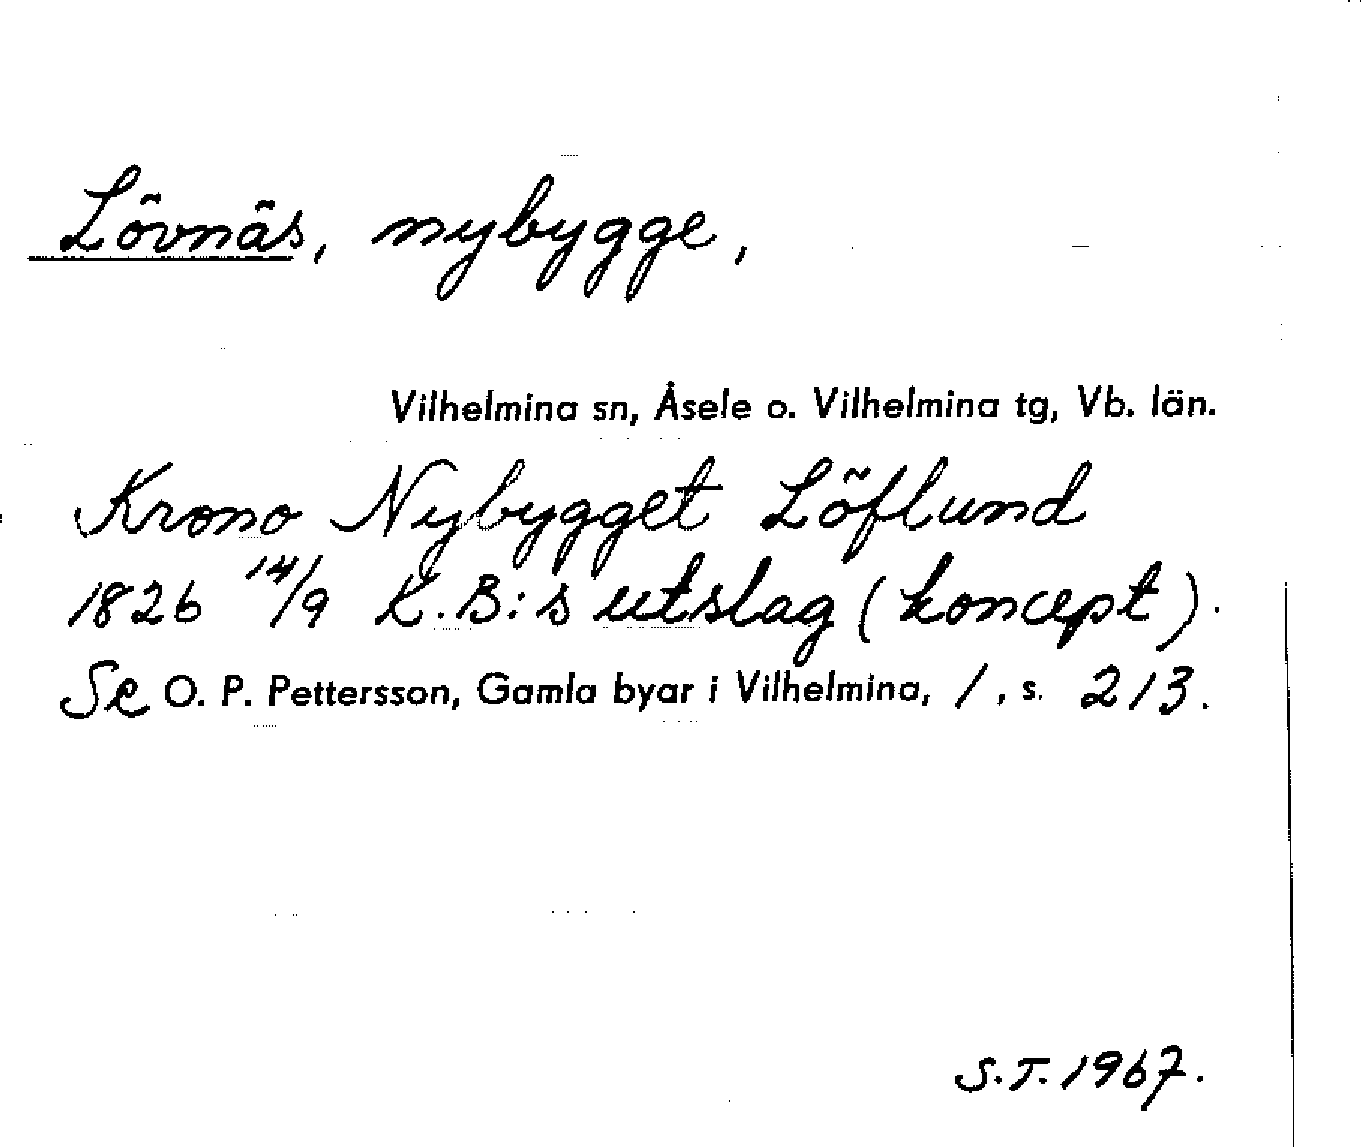 Lövnäs, nybygge,
Vilhelmina sn, Åsele o. Vilhelmina tg, Vb. län.
Krono Nybygget Löflund
1826 14/9 K.B:s utslag (koncept).
Se O. P. Pettersson, Gamla byar i Vilhelmina, 1, s. 213.
S.T. 1967.